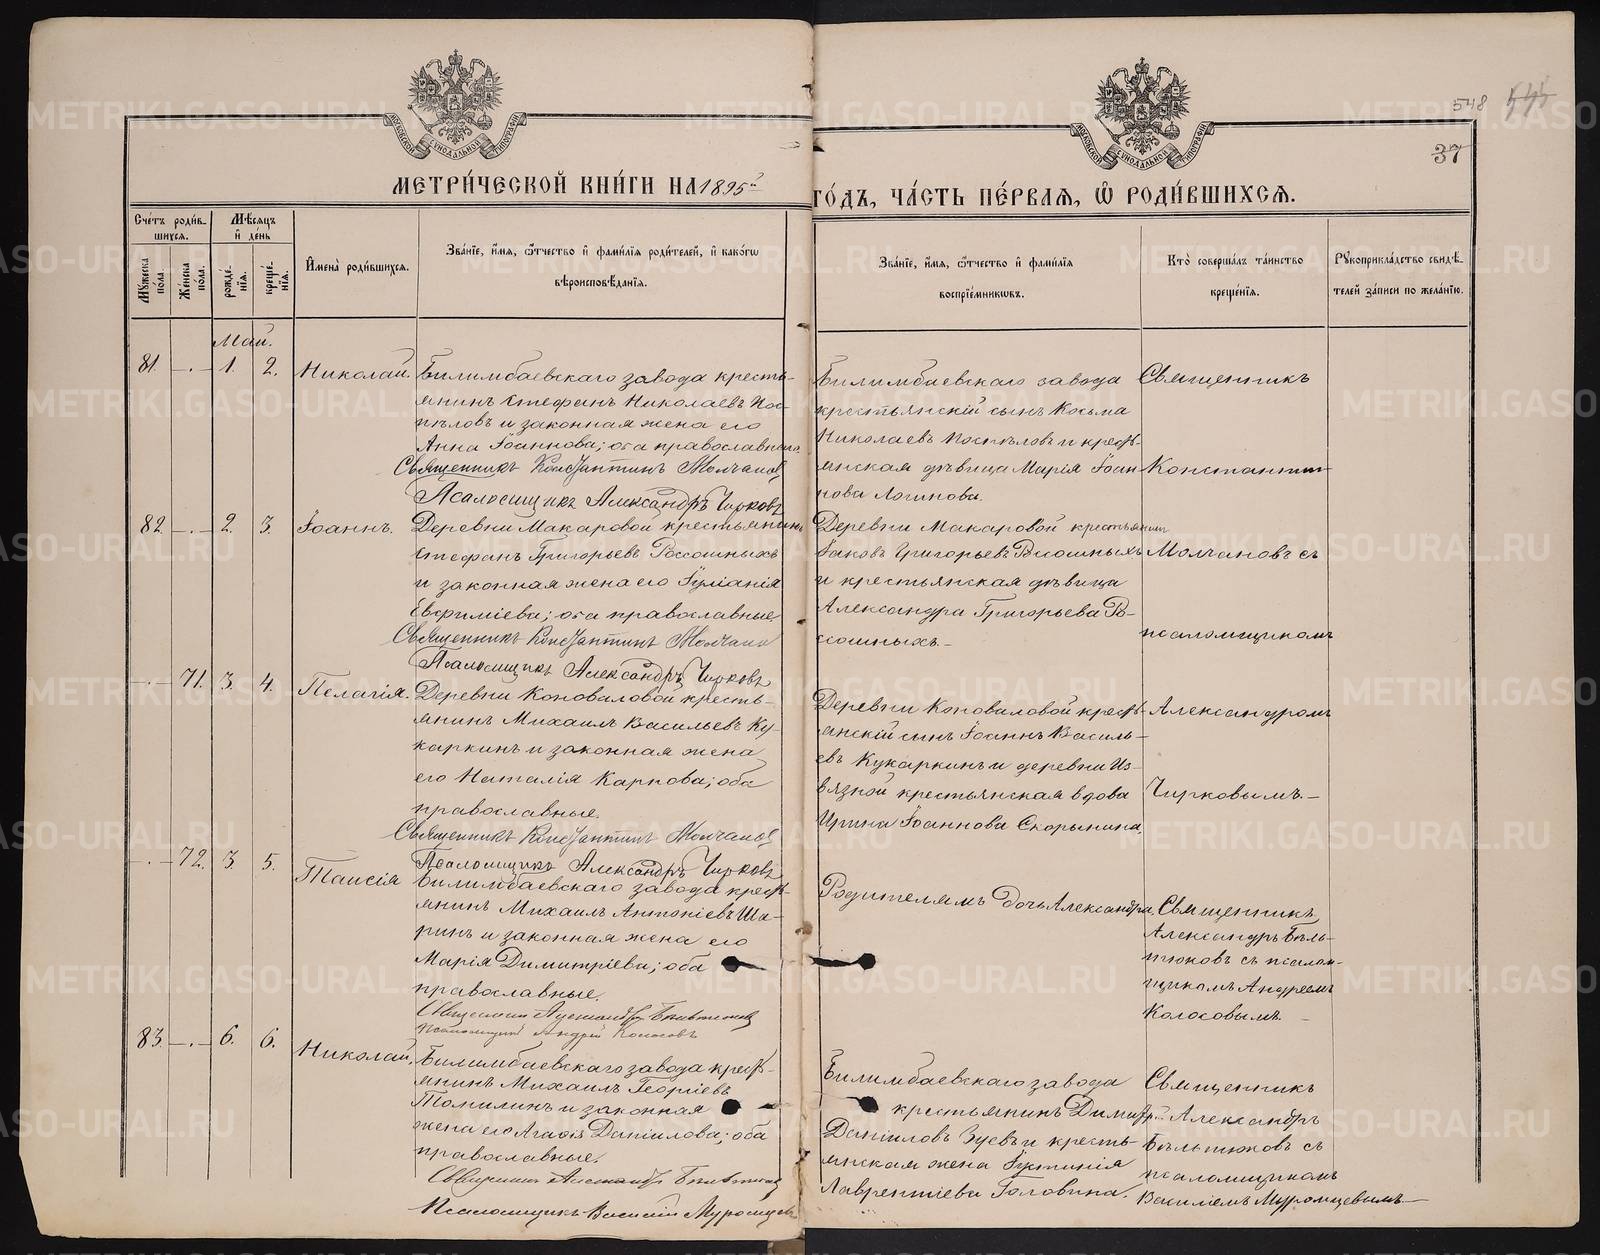 548 545
37
МОСКОВСКОЙ СѴНОДАЛЬНОЙ ТИПОГРАФІИ
МОСКОВСКОЙ СѴНОДАЛЬНОЙ ТИПОГРАФІИ
МЕТРИ́ЧЕСКОЙ КНИ́ГИ НА 1895й ГО́ДЪ, ЧА́СТЬ ПЕ́РВАѦ, Ѽ РОДИ́ВШИХСѦ.
Сче́тъ роди́вшихсѧ.
Мꙋ́жеска по́ла.
Же́нска по́ла.
Мѣ́сѧцъ и҆ де́нь
рожде́нїѧ.
креще́нїѧ.
И҆мена̀ роди́вшихсѧ.
Зва́нїе, и҆́мѧ, ѻ҆́тчество и҆ фами́лїѧ роди́телей, и҆ како́гѡ
вѣроисповѣ́данїѧ.
Зва́нїе, и҆́мѧ, ѻ҆́тчество и҆ фами́лїѧ
воспрїе́мникѡвъ.
Кто̀ соверша́лъ та́инство
креще́нїѧ.
Рꙋкоприкла́дство свидѣ́
телей за́писи по жела́нїю.
Май.
81. — . — 1. 2. Николай.
Билимбаевскаго завода кресть-
янинъ Стефанъ Николаевъ Пос-
пѣловъ и законная жена его
Анна Іоаннова; оба православные.
Священникъ Константинъ Молчановъ
Псаломщикъ Александръ Чирковъ
Билимбаевскаго завода
крестьянскій сынъ Косьма
Николаевъ Поспѣловъ и кресть-
янская дѣвица Марія Іоан-
нова Логинова.
Священникъ
Константинъ
82. — . — 2. 3. Іоаннъ.
Деревни Макаровой крестьянинъ
Стефанъ Григорьевъ Россошныхъ
и законная жена его Іуліанія
Евфиміева; оба православные
Священникъ Константинъ Молчановъ
Псаломщикъ Александръ Чирковъ
Деревни Макаровой крестьянинъ
Іаковъ Григорьевъ Россошныхъ
и крестьянская дѣвица
Александра Григорьева Ро-
ссошныхъ.
Молчановъ съ
псаломщикомъ
— . — 71. 3. 4. Пелагія.
Деревни Коноваловой кресть-
янинъ Михаилъ Васильевъ Ку-
каркинъ и законная жена
его Наталія Карпова; оба
православные.
Священникъ Константинъ Молчановъ
Псаломщикъ Александръ Чирковъ
Деревни Коноваловой кресть-
янскій сынъ Іоаннъ Василь-
евъ Кукаркинъ и деревни Из-
вязной крестьянская вдова
Ирина Іоаннова Скорынина.
Александромъ
Чирковымъ.
— . — 72. 3. 5. Таисія
Билимбаевскаго завода кресть-
янинъ Михаилъ Антоніевъ Ша-
ринъ и законная жена его
Марія Димитріева; оба
православные.
Священникъ Александръ Бѣльтюковъ
Псаломщикъ Андрей Колосовъ
Родителямъ дочь Александра
Священникъ
Александръ Бѣль-
тюковъ съ псалом-
щикомъ Андреемъ
Колосовымъ.
83. — . — 6. 6. Николай.
Билимбаевскаго завода кресть-
янинъ Михаилъ Георгіевъ
Томилинъ и законная
жена его Агаѳія Даніилова; оба
православные.
Священникъ Александръ Бѣльтюковъ
Псаломщикъ Василій Муромцевъ
Билимбаевскаго завода
крестьянинъ Димитрій
Даніиловъ Зуевъ и кресть-
янская жена Іустинія
Лаврентіева Головина.
Священникъ
Александръ
Бѣльтюковъ съ
псаломщикомъ
Василіемъ Муромцевымъ
METRIKI.GASO-URAL.RU